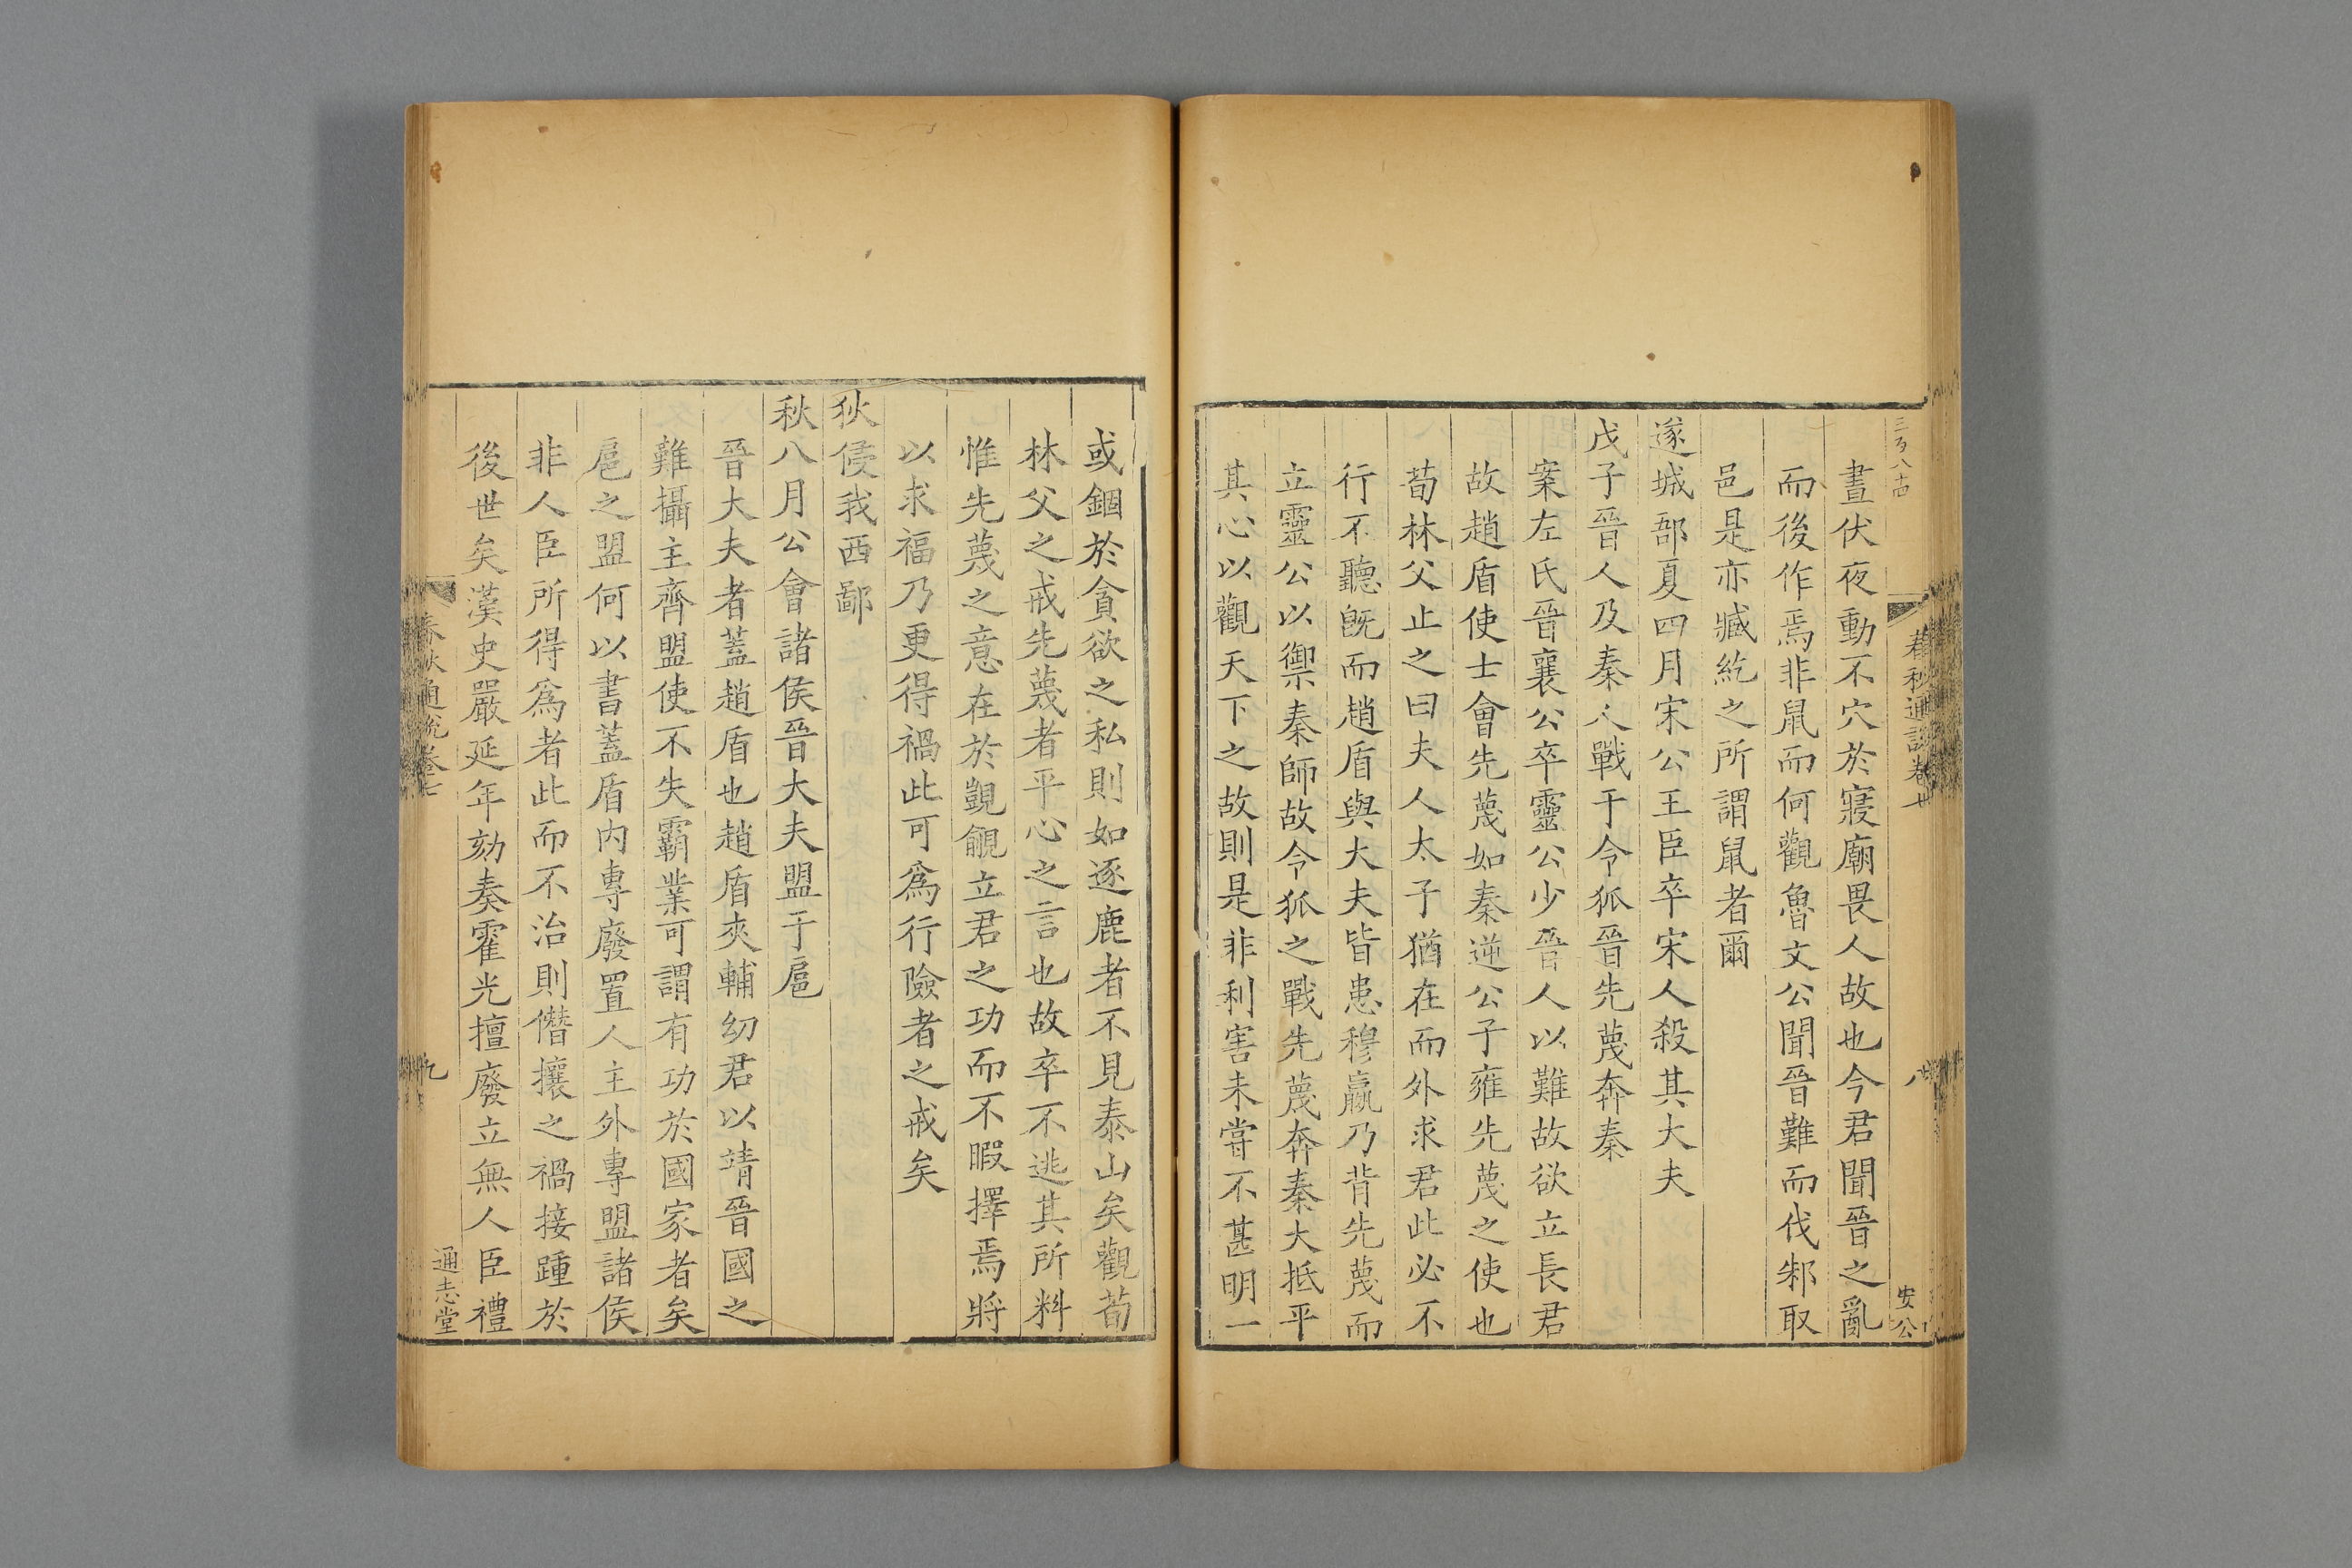 三百八十四
春秋通說卷七
八
安公
晝伏夜動不穴於寢廟畏人故也今君聞晉之亂
而後作焉非鼠而何觀魯文公聞晉難而伐邾取
邑是亦臧紇之所謂鼠者爾
遂城郚夏四月宋公王臣卒宋人殺其大夫
戊子晉人及秦人戰于令狐晉先蔑奔秦
案左氏晉襄公卒靈公少晉人以難故欲立長君
故趙盾使士會先蔑如秦逆公子雍先蔑之使也
荀林父止之曰夫人太子猶在而外求君此必不
行不聽旣而趙盾與大夫皆患穆嬴乃背先蔑而
立靈公以禦秦師故令狐之戰先蔑奔秦大抵平
其心以觀天下之故則是非利害未嘗不甚明一
或錮於貪欲之私則如逐鹿者不見泰山矣觀荀
林父之戒先蔑者平心之言也故卒不逃其所料
惟先蔑之意在於覬覦立君之功而不暇擇焉將
以求福乃更得禍此可爲行險者之戒矣
狄侵我西鄙
秋八月公會諸侯晉大夫盟于扈
晉大夫者蓋趙盾也趙盾夾輔幼君以靖晉國之
難攝主齊盟使不失霸業可謂有功於國家者矣
扈之盟何以書蓋盾内專廢置人主外專盟諸侯
非人臣所得爲者此而不治則僭攘之禍接踵於
後世矣漢史嚴延年劾奏霍光擅廢立無人臣禮
春秋通說卷七
九
通志堂